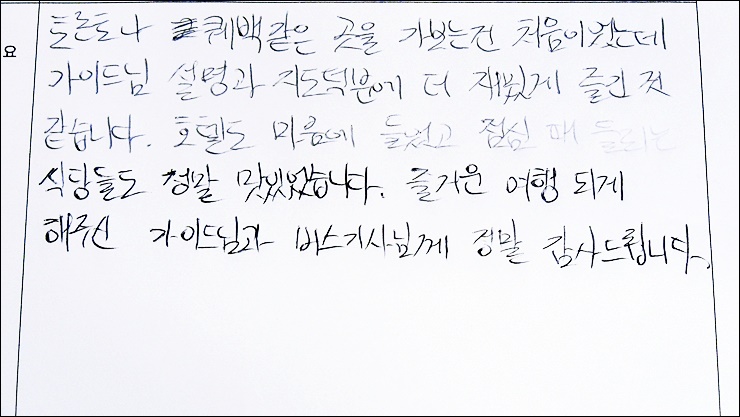 토론토나 퀘백같은 곳을 가보는건 처음이었는데
요
가이드님 설명과 지도덕분에 더 재밌게 즐긴 것
같습니다. 호텔도 마음에 들었고 점심 때 들리는
식당들도 정말 맛있었습니다. 즐거운 여행 되게
해주신 가이드님과 버스기사님께 정말 감사드립니다.